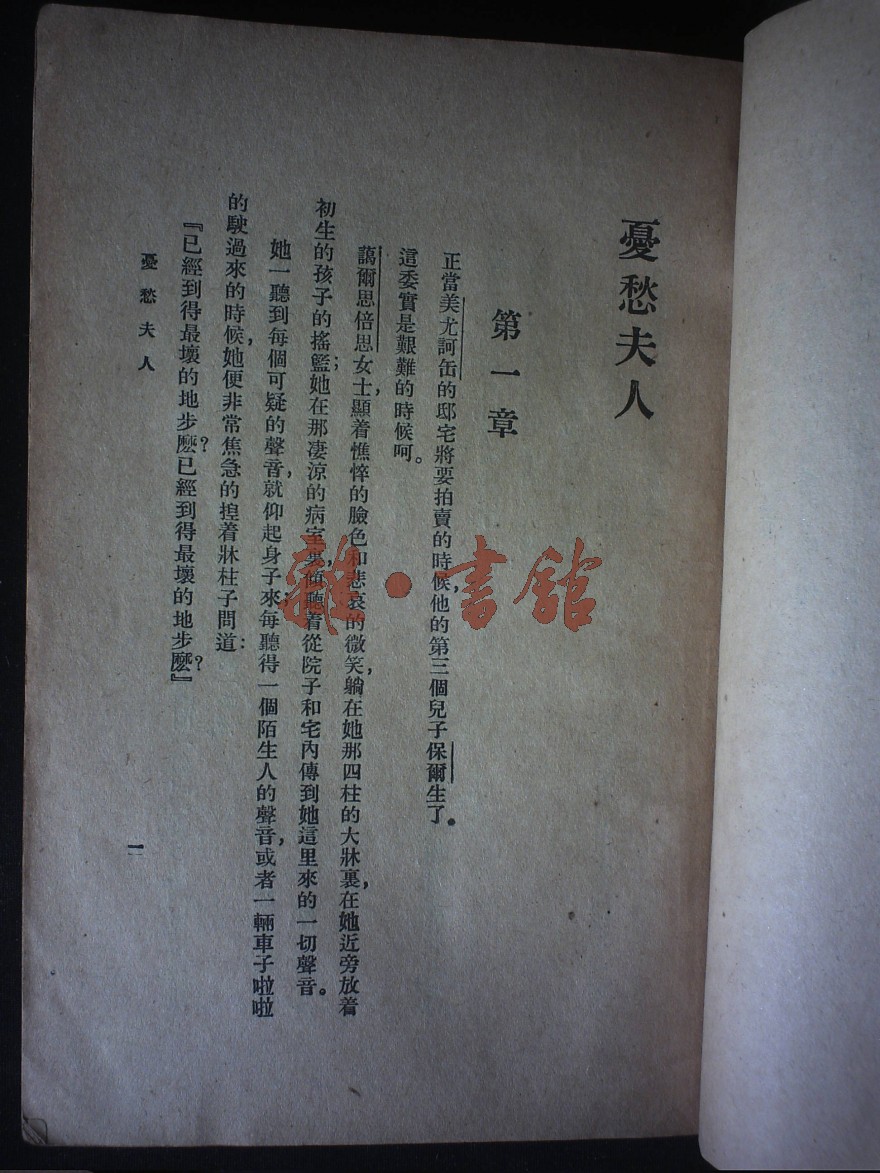 憂愁夫人
第一章
正當美尤訶缶的邸宅將要拍賣的時候，他的第三個兒子保爾生了。
這委實是艱難的時候呵。
藹爾思倍思女士，顯着憔悴的臉色和悲哀的微笑，躺在她那四柱的大牀裏，在她近旁放着
初生的孩子的搖籃；她在那凄涼的病室裏，傾聽着從院子和宅內傳到她這里來的一切聲音。
她一聽到每個可疑的聲音，就仰起身子來；每聽得一個陌生人的聲音，或者一輛車子啦啦
的駛過來的時候，她便非常焦急的揑着牀柱子問道：
『已經到得最壞的地步麽？已經到得最壞的地步麽？』
憂愁夫人
一
雜·書館